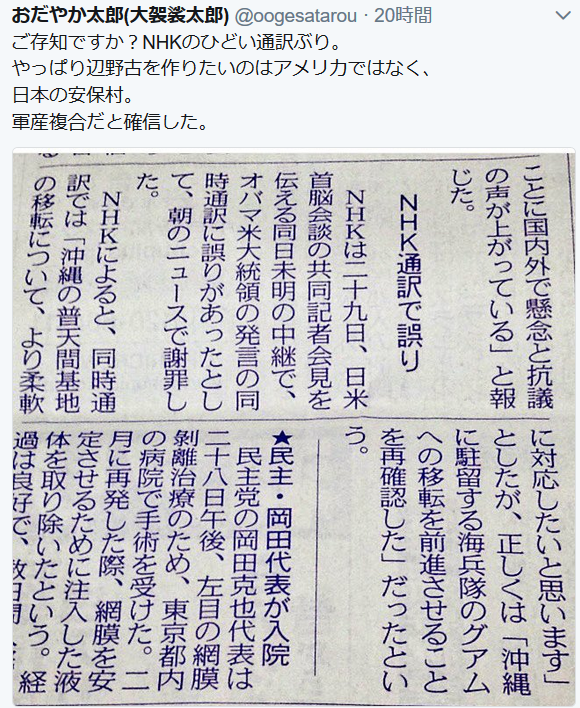 おだやか太郎(大袈裟太郎) @oogesatarou · 20時間
ご存知ですか？NHKのひどい通訳ぶり。
やっぱり辺野古を作りたいのはアメリカではなく、
日本の安保村。
軍産複合だと確信した。
ことに国内外で懸念と抗議
の声が上がっている」と報
じた。
NHK通訳で誤り
NHKは二十九日、日米
首脳会談の共同記者会見を
伝える同日未明の中継で、
オバマ米大統領の発言の同
時通訳に誤りがあったとし
て、朝のニュースで謝罪し
た。
NHKによると、同時通
訳では「沖縄の普天間基地
の移転について、より柔軟
に対応したいと思います」
としたが、正しくは「沖縄
に駐留する海兵隊のグアム
への移転を前進させること
を再確認した」だったとい
う。
★民主・岡田代表が入院
民主党の岡田克也代表は
二十八日午後、左目の網膜
剥離治療のため、東京都内
の病院で手術を受けた。二
月に再発した際、網膜を安
定させるために注入した液
体を取り除いたという。経
過は良好で、